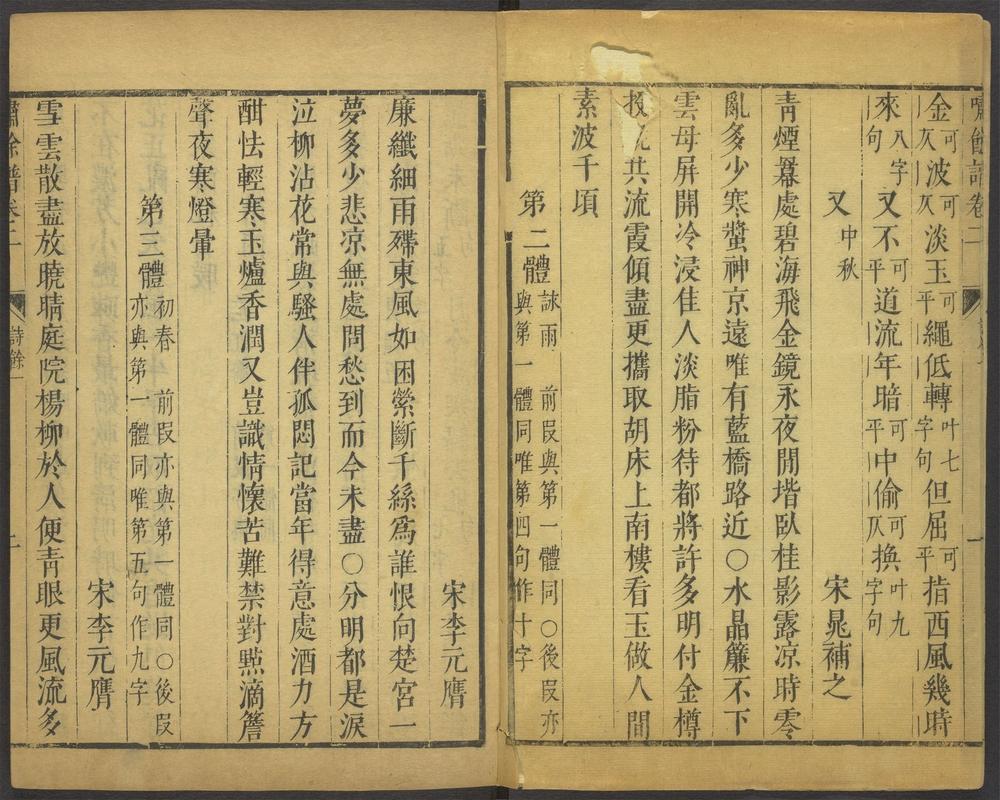 嘯餘譜卷二
金可仄波可仄淡玉可平繩低轉叶七字句但屈可平指西風幾時
來八字句又不可平道流年暗可平中偷可仄換叶九字句
又中秋 宋晁補之
青煙冪處碧海飛金鏡永夜閒堦臥桂影露凉時零
亂多少寒螿神京遠唯有藍橋路近○水晶簾不下
雲母屏開冷浸佳人淡脂粉待都將許多明付金樽
共流霞傾盡更攜取胡床上南樓看玉做人間
素波千頃
第二體詠雨 前段與第一體同○後段亦與第一體同唯第四句作十字
宋李元膺
廉纖細雨殢東風如困縈斷千絲爲誰恨向楚宮一
夢多少悲凉無處問愁到而今未盡○分明都是淚
泣柳沾花常與騷人伴孤悶記當年得意處酒力方
酣怯輕寒玉爐香潤又豈識情懷苦難禁對點滴簷
聲夜寒燈暈
第三體初春 前段亦與第一體同○後段亦與第一體同唯第五句作九字
宋李元膺
雪雲散盡放曉晴庭院楊柳於人便青眼更風流多
嘯餘譜卷二 詩餘一 二